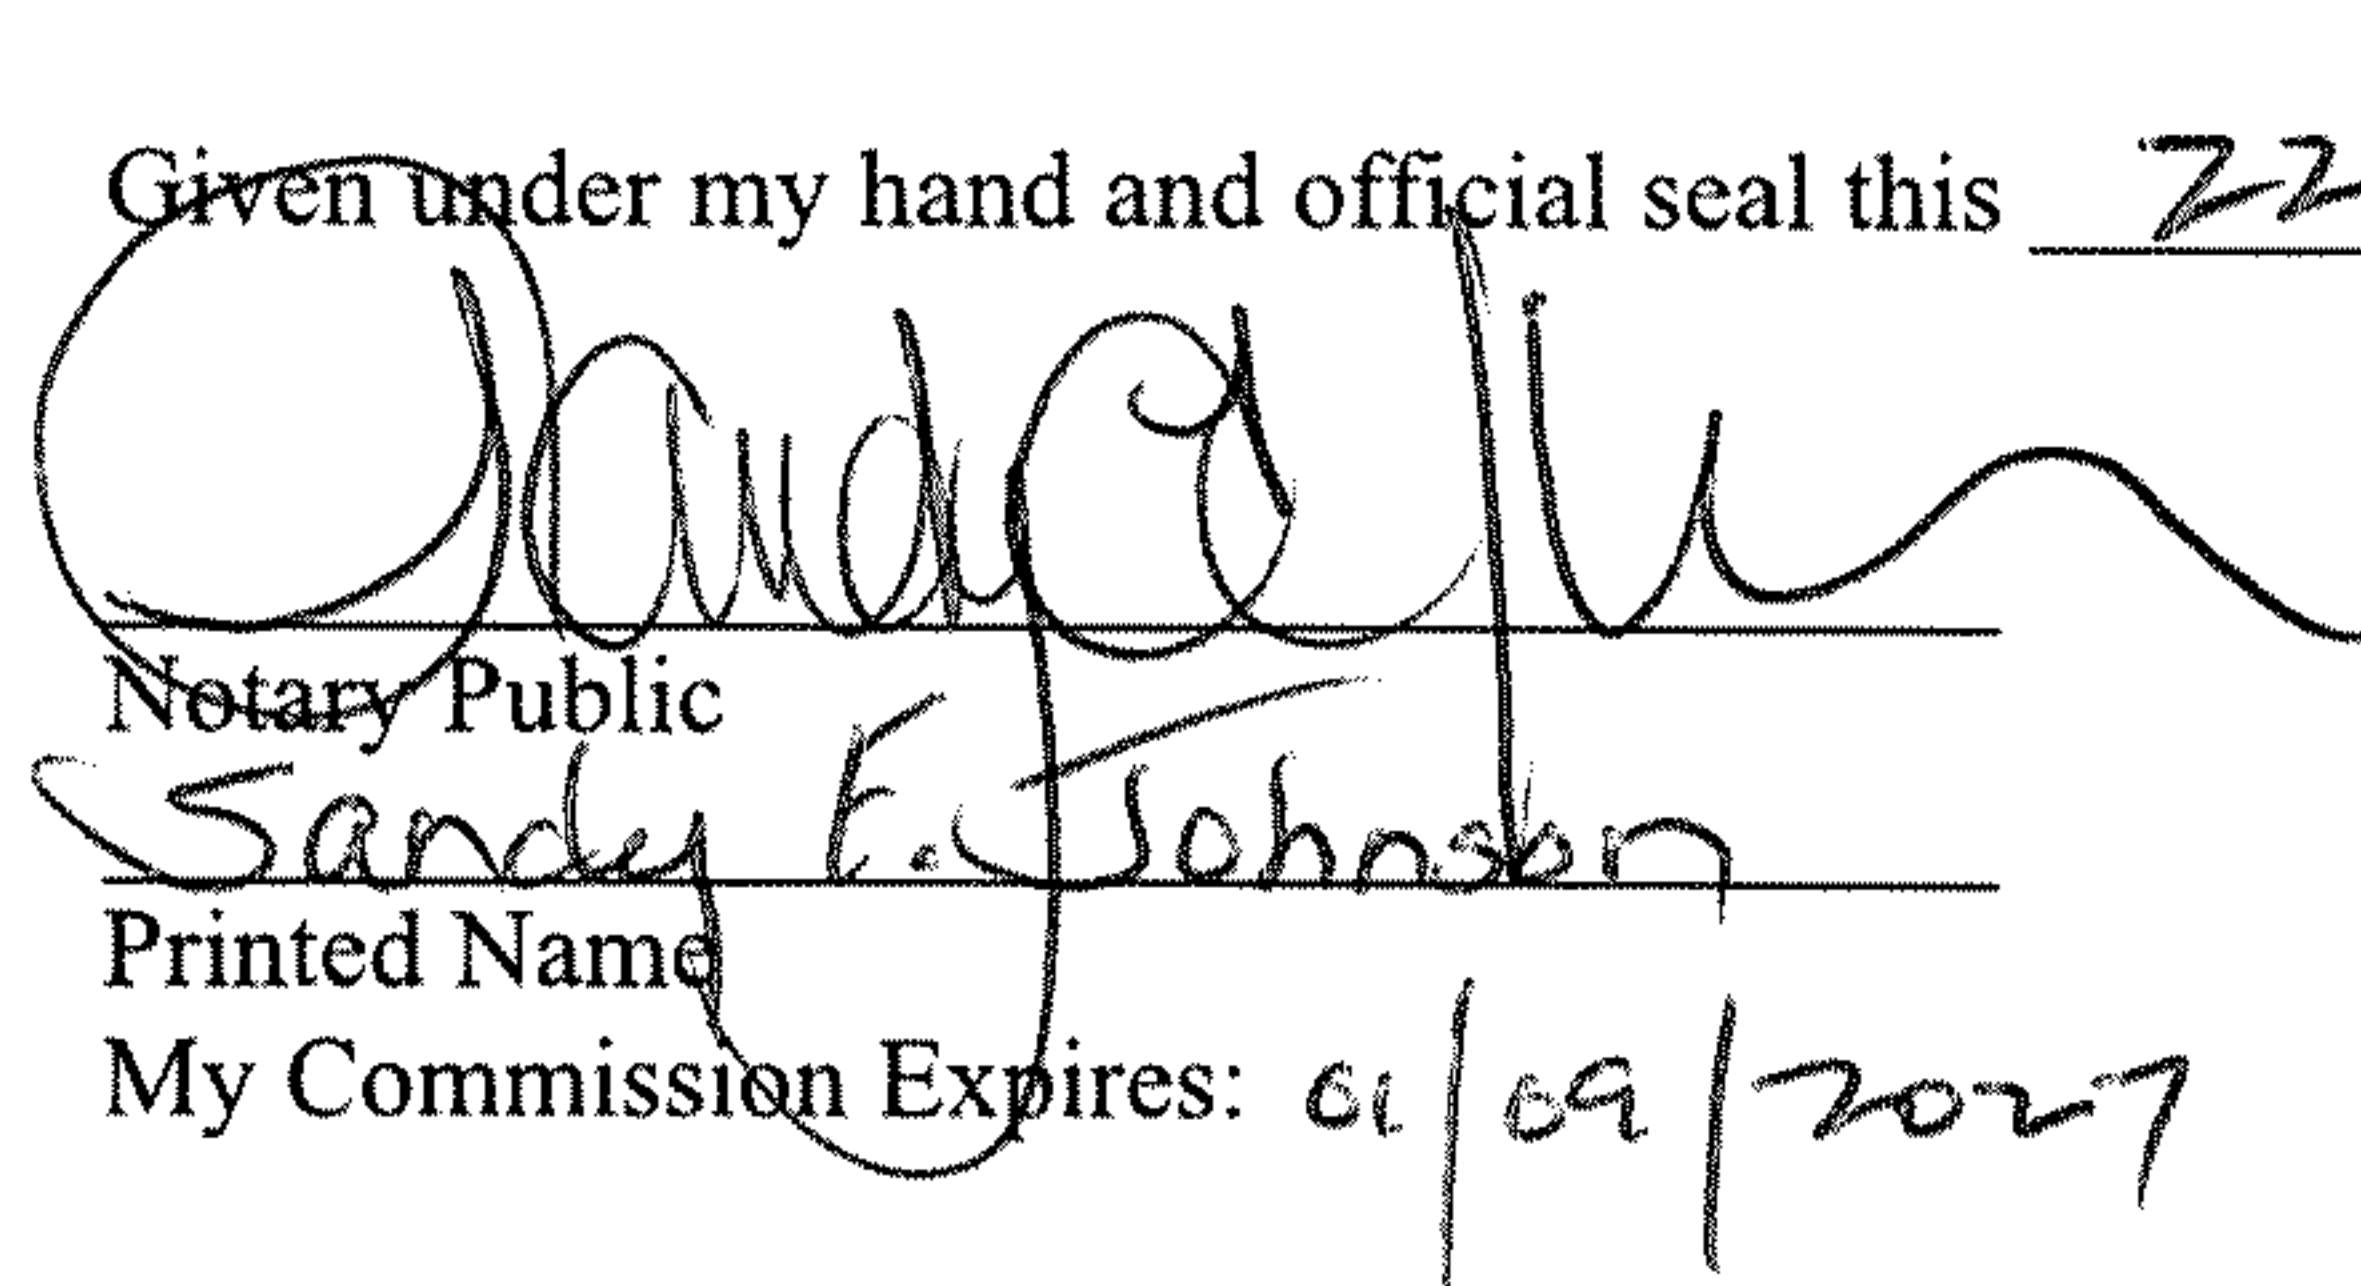 Given under my hand and official seal this 22
Notary Public
Sandy E. Johnson
Printed Name
My Commission Expires: 01/09/2027